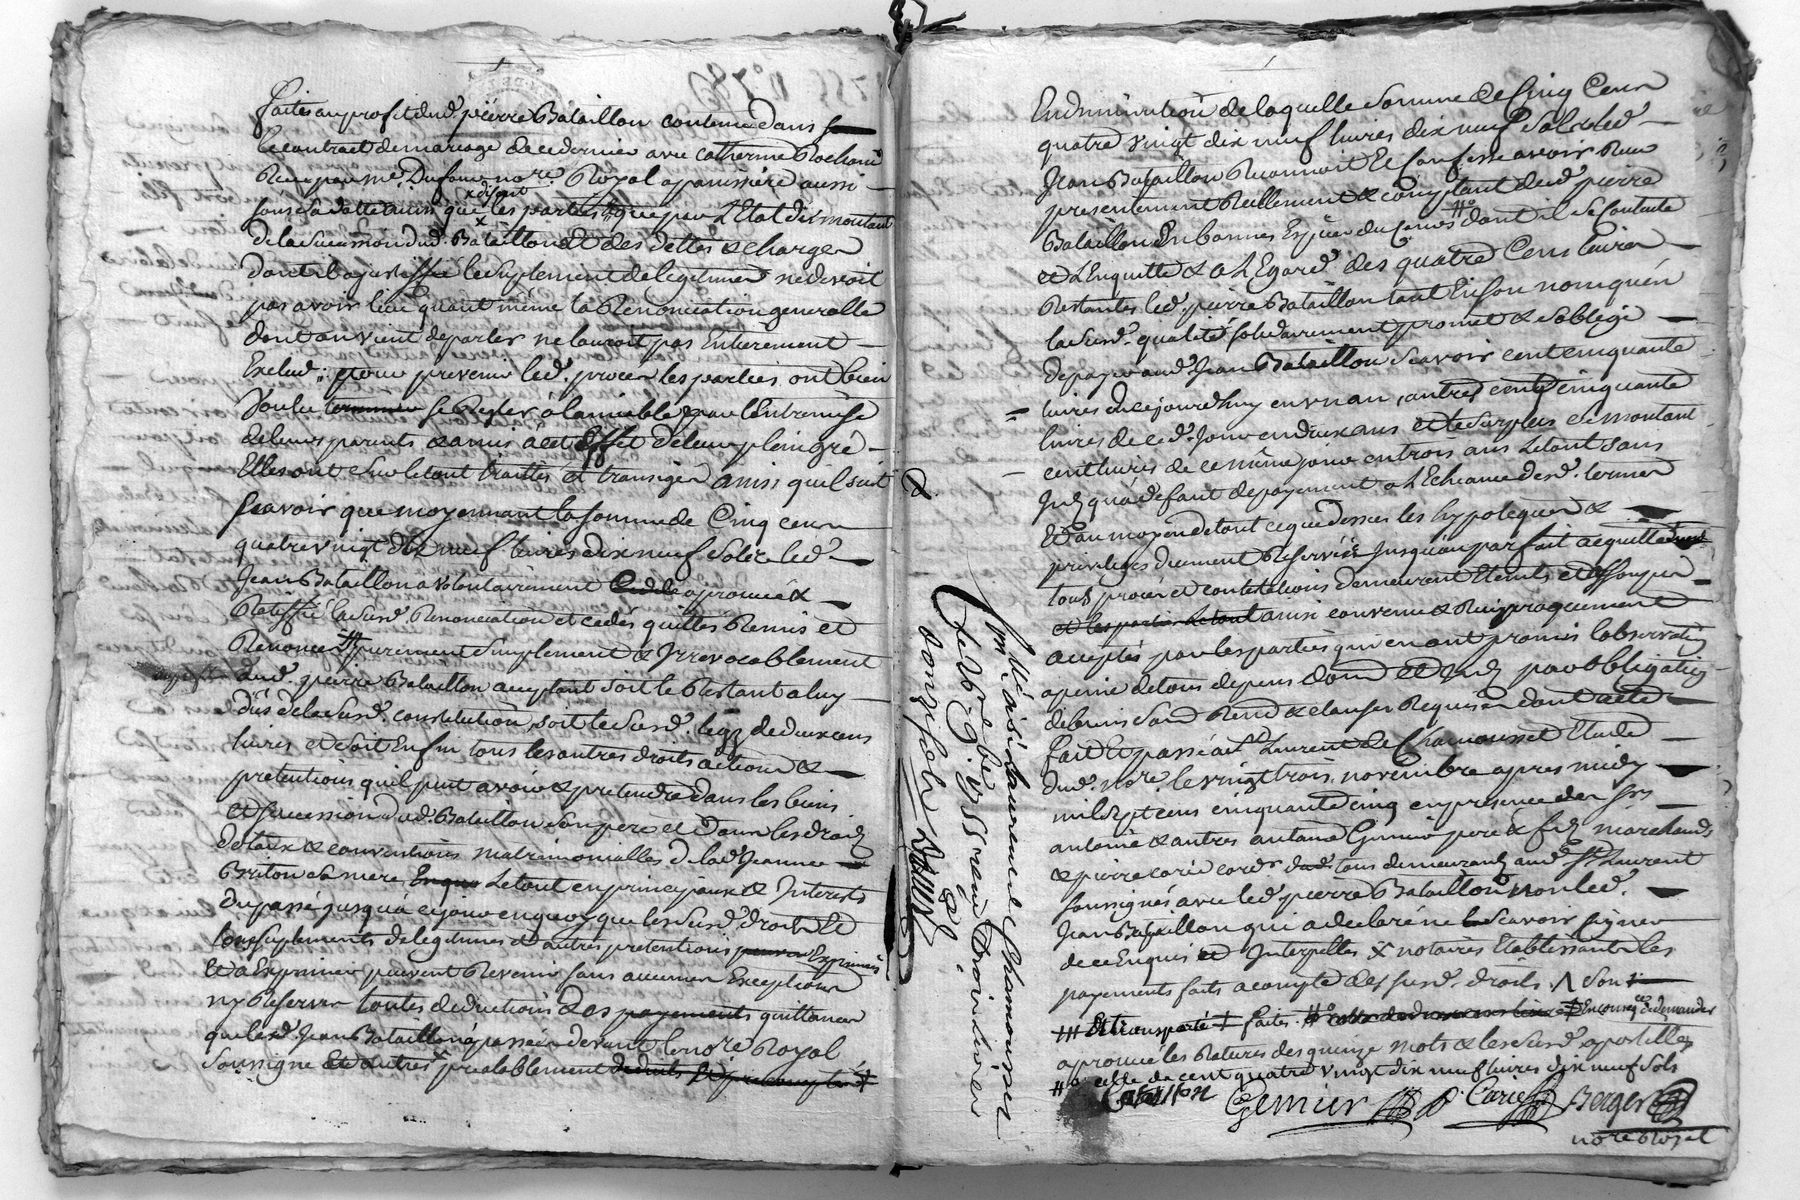 faites au profit dud. pierre Bataillon contenue dans
le contract de mariage de ce dernier avec Catherine Rochand
Reçu par me. Dufour nore. Royal aparissiere aussi
sous sa datte ainsi que les parties que par L'Etat du montant
xdisant
de la sucession dud. Bataillon et des dettes & charges
dont il a justiffié le suplement de legitime ne devroit
pas avoir lieu quant même la Renonciation generalle
dont on vient de parler ne l'auroit pas Entierement
Exclud; et pour prevenir led. procès les parties ont bien
voulu terminer se Regler à l'amiable par l'Entremise
de leurs parents & amis à cet Effet de leur plein gré
Elles ont sur le tout traittés et transigés ainsi qu'il suit
scavoir que moyennant la somme de Cinq cens
quatre vingt dix neuf livres dix neuf sols led.
Jean Bataillon a volontairement Cedde aprouvé &
Ratiffié la susd. Renonciation et cedés quittés Remis et
Renoncé purement simplement & Irrevocablement
aud. pierre Bataillon acceptant soit le Restant a luy
dûs de la susd. constitution, soit le susd. legs de deux cens
livres et soit Enfin tous les autres droits actions &
pretentions qu'il peut avoir & pretendre dans les biens
et sucession dud. Bataillon son pere et dans les droits
dotaux & conventions matrimonialles de lad. Jeanne
Briton sa mere En quoy Le tout en principaux & Interets
du passé jusqu'a ce jour en quoy que les susd. droits Et
tous suplements de legitimes et autres pretentions Exprimés
Et a Exprimer puissent Revenir sans aucunes Exceptions
ny Reserves toutes deductions des payements quittances
que led. Jean Bataillon a passées devant le nore Royal
soussigné et autres prealablement deduits
En diminution de laquelle somme de Cinq Cens
quatre vingt dix neuf livres dix neuf sols led.
Jean Bataillon Reconnoit Et Confesse avoir Reçu
presentement Reellement & comptant dud. pierre
Bataillon En bonnes Espèces du Cours dont il se Contente
et L'Enquitte & a L'Egard des quatre Cens livres
Restantes led. pierre Bataillon tant En son nom qu'en
la susd. qualité solidairement promet & s'oblige
de payer aud. Jean Bataillon scavoir cent cinquante
livres de ce jourd'huy en un an, autres cent cinquante
livres de ced. jour en deux ans et le surplus et montant
cent livres de ce même jour en trois ans Le tout sans
Interets qu'à defaut de payement a L'Echeance desd. termes
Et au moyen de tout ce que dessus les hypoteques &
privileges duement Reservées jusqu'au parfait acquittement
tous procés et contestations demeurent Eteints et assoupis
et les parties Le tout ainsi convenu & Reciproquement
acceptés par les parties qui en ont promis l'observation
a peine de tous depens dom. et Int. par obligation
de biens soum. Renon. & clauses Requises dont acte
fait Et passé a St. Laurent de Chamousset Etude
dud. nore. le vingt trois novembre apres midy
mil sept cens cinquante cinq en presence des srs
antoine & autres antoine Gemier pere & fils marchands
& pierre carié cordr. tous demeurants aud. St. Laurent
soussignés avec led. pierre Bataillon non led.
Jean Bataillon qui a declaré ne le scavoir signer
de ce Enquis et Interpellés x notaires Etablissant les
payements faits a compte des susd. droits. Λ son
+++ Et transporté + faites
aprouvé les Ratures des quinze mots & les susd. apostilles
celle de cent quatre vingt dix neuf livres dix neuf sols
Bataillon Gemier P. Carié Berger
nore Royal
Con.llé à St. Laurent de Chamousset
le 3e. xbre. 1755 reçu trois livres
donze sols